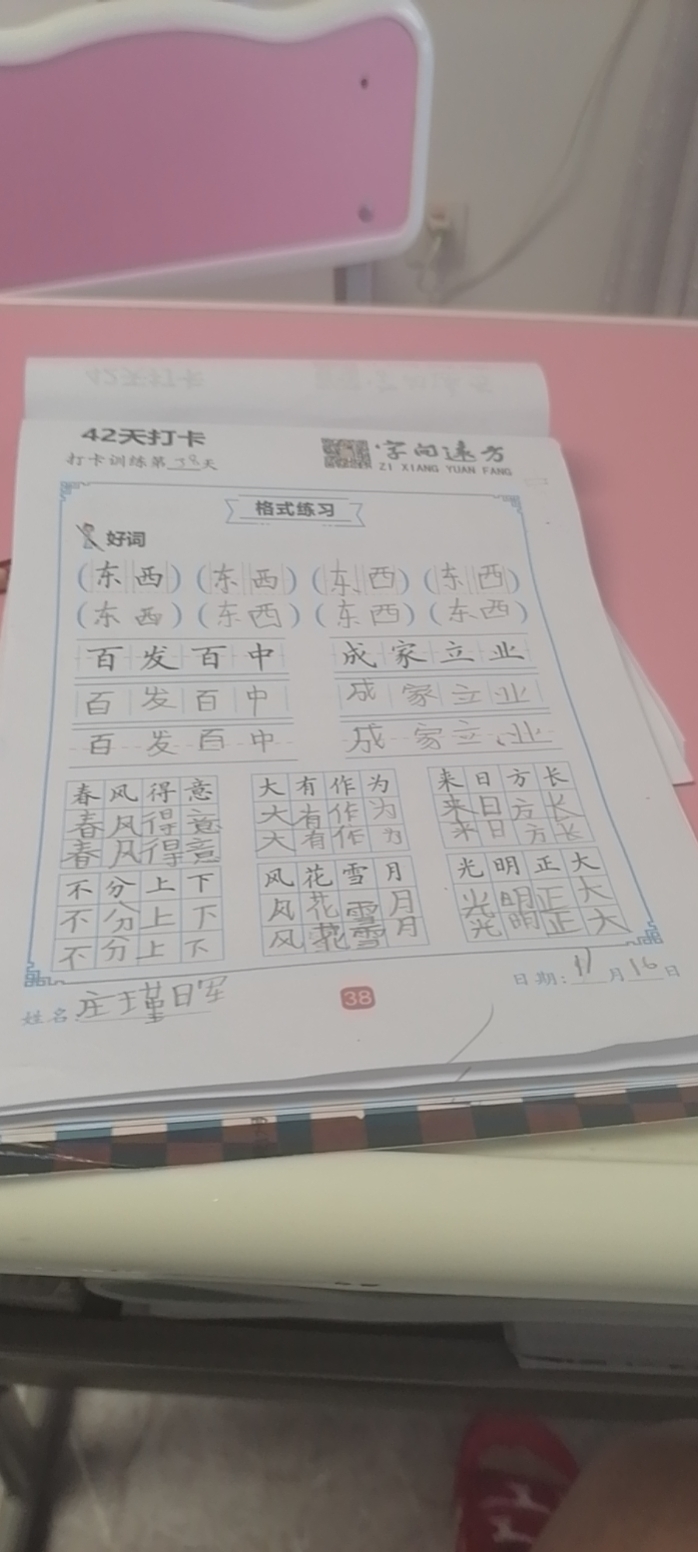 42天打卡
字向远方
打卡训练第38天
ZI XIANG YUAN FANG
格式练习
好词
(东西) (东西) (东西) (东西)
(东西) (东西) (东西) (东西)
百发百中 成家立业
百发百中 成家立业
百发百中 成家立、业
春风得意 大有作为 来日方长
春风得意 大有作为 来日方长
春风得意 大有作为 来日方长
不分上下 风花雪月 光明正大
不分上下 风花雪月 光明正大
不分上下 风花雪月 光明正大
姓名:庄瑾
38
日期:11月16日